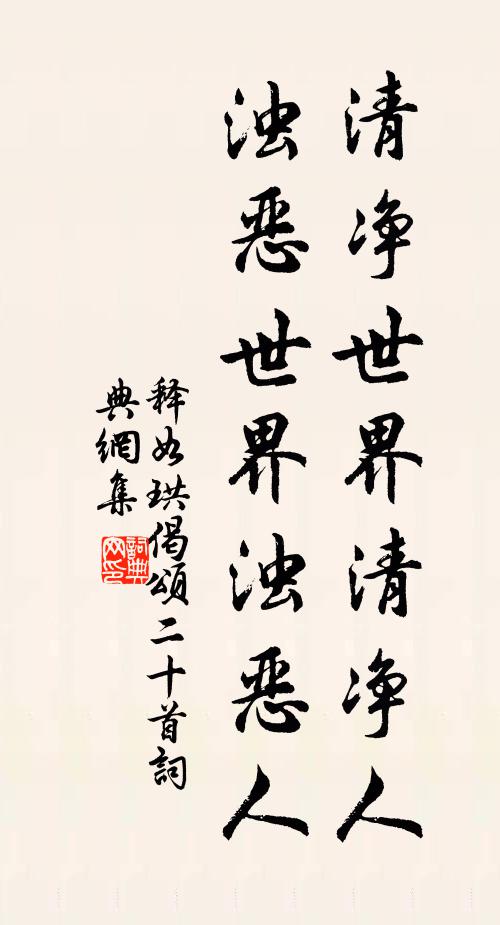 清净世界清净人
浊恶世界浊恶人
释如珙偈頌二十首詞
典網集
詞典网印